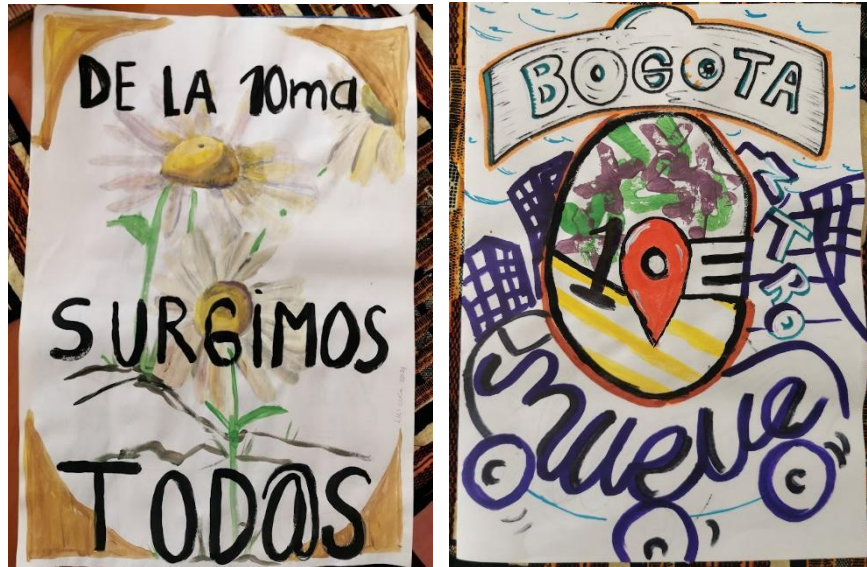 DE LA 10ma
SURGiMOS
TOD@S
BOGOTA
10
mueve